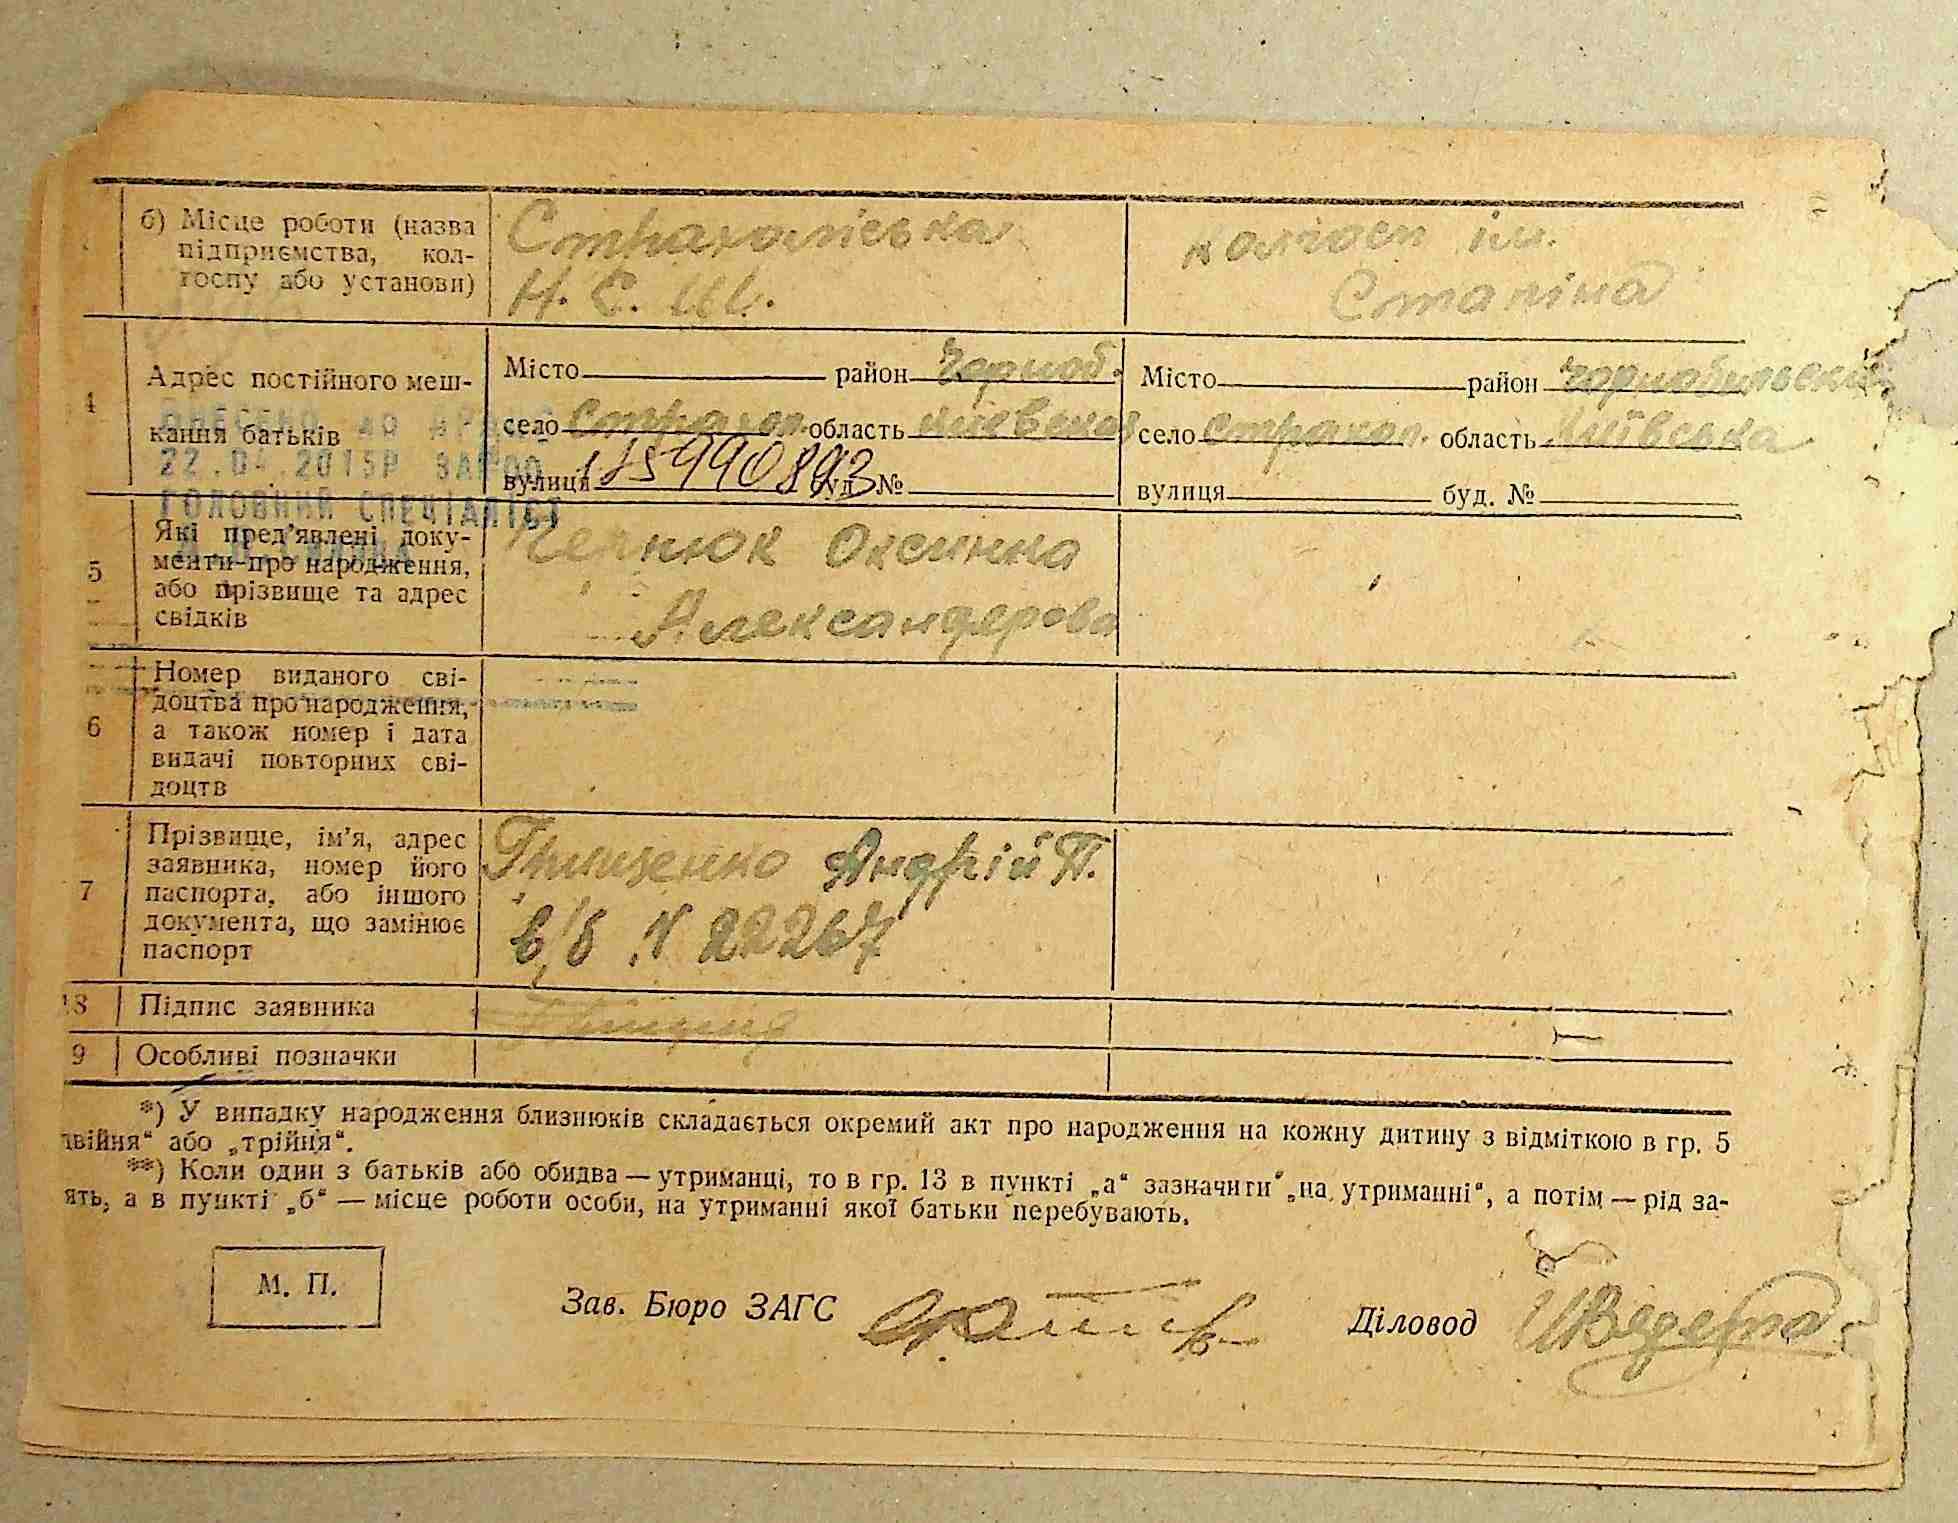 б) Місце роботи (назва
підприємства, кол-
госпу або установи)
Страхоліська
Н. С. Ш.
колгосп ім.
Сталіна
4
Адрес постійного меш-
кання батьків
Місто район Чорноб.
село Страхол. область Київська
вулиця буд. №
175990893
Місто район Чорнобильський
село Страхол. область Київська
вулиця буд. №
ВНЕСЕНО ДО ДРАЦС
22.04.2015Р
ГОЛОВНИЙ СПЕЦІАЛІСТ
5
Які пред'явлені доку-
менти про народження,
або прізвище та адрес
свідків
Оксинка
Александрова
6
Номер виданого сві-
доцтва про народження,
а також номер і дата
видачі повторних сві-
доцтв
7
Прізвище, ім'я, адрес
заявника, номер його
паспорта, або іншого
документа, що замінює
паспорт
Грищенко Андрій П.
в/б N 22267
18
Підпис заявника
9
Особливі позначки
*) У випадку народження близнюків складається окремий акт про народження на кожну дитину з відміткою в гр. 5
двійня“ або „трійня“.
**) Коли один з батьків або обидва — утриманці, то в гр. 13 в пункті „а“ зазначити „на утриманні“, а потім — рід за-
ять, а в пункті „б“ — місце роботи особи, на утриманні якої батьки перебувають.
М. П.
Зав. Бюро ЗАГС
Діловод